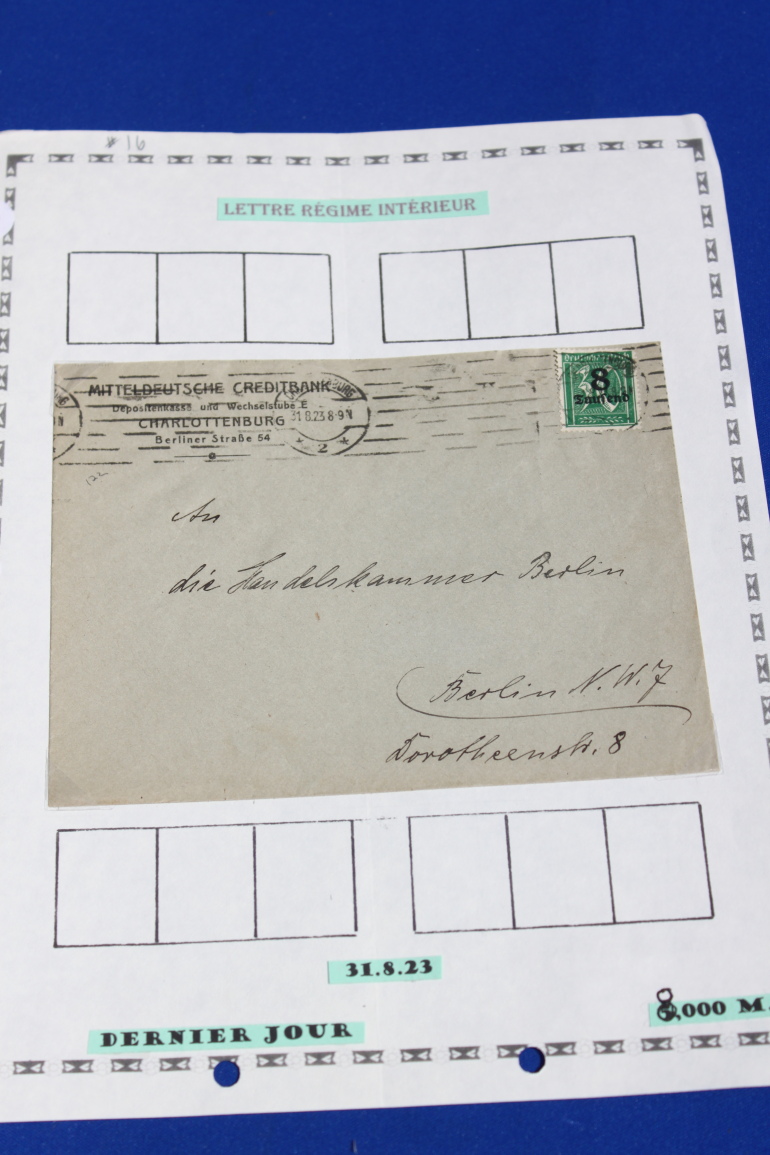 # 16
LETTRE RÉGIME INTÉRIEUR
MITTELDEUTSCHE CREDITBANK
Depositenkasse und Wechselstube E
CHARLOTTENBURG
Berliner Straße 54
31.8.23 8-9 N
2
8
Tausend
122
An
die Handelskammer Berlin
Berlin N.W.7
Dorotheenstr. 8
31.8.23
8,000 M.
DERNIER JOUR